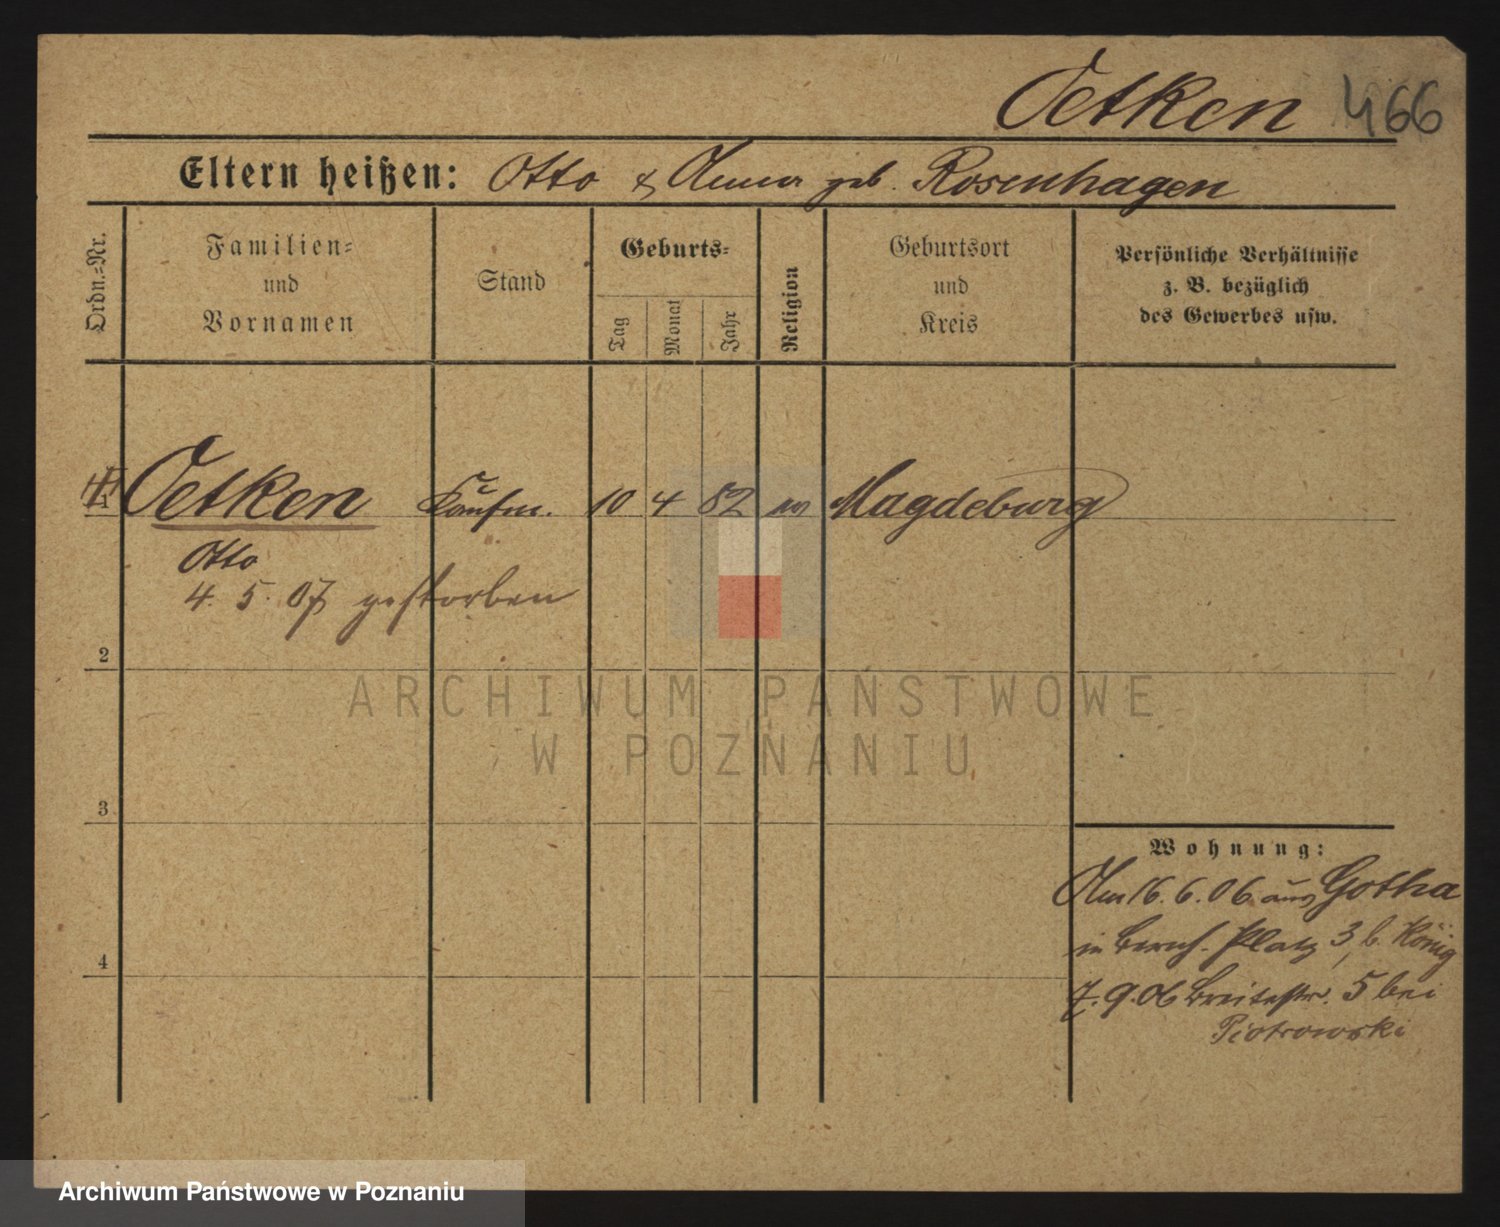 Oetken 466
Eltern heißen: Otto & Anna geb. Rosenhagen
Ordn.=Nr.
Familien=
und
Vornamen
Stand
Geburts=
Tag
Monat
Jahr
Religion
Geburtsort
und
Kreis
Persönliche Verhältnisse
z. B. bezüglich
des Gewerbes usw.
1 Oetken Kaufm. 10 4 82 Magdeburg
Otto
4. 5. 07 gestorben
2
3
4
Wohnung:
Am 16. 6. 06 aus Gotha
in Platz 3, b. König
7. 9. 06 Breitestr. 5 bei
Piotrowski
ARCHIWUM PAŃSTWOWE
W POZNANIU
Archiwum Państwowe w Poznaniu